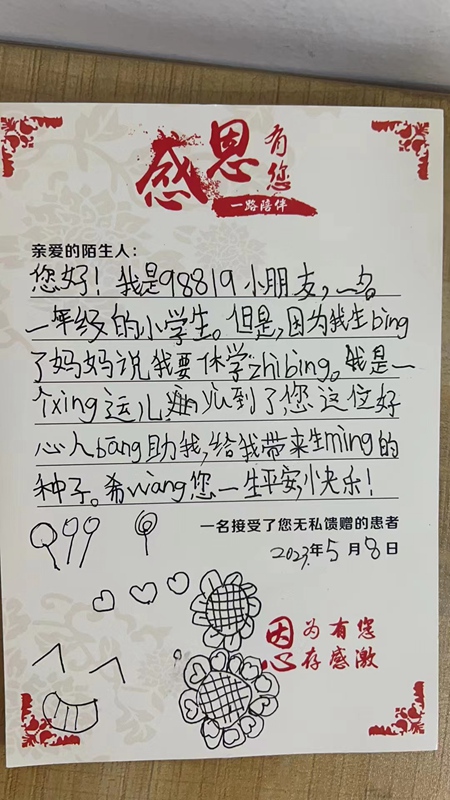 感恩有您
一路陪伴
亲爱的陌生人：
您好！我是98819小朋友，一名
一年级的小学生。但是，因为我生bìng
了妈妈说我要休学zhìbìng。我是一
个xìng运儿，遇到了您这位好
心人bāng助我，给我带来生mìng的
种子。希wàng您一生平安，快乐！
一名接受了您无私馈赠的患者
2023年5月8日
因为有您
心存感激